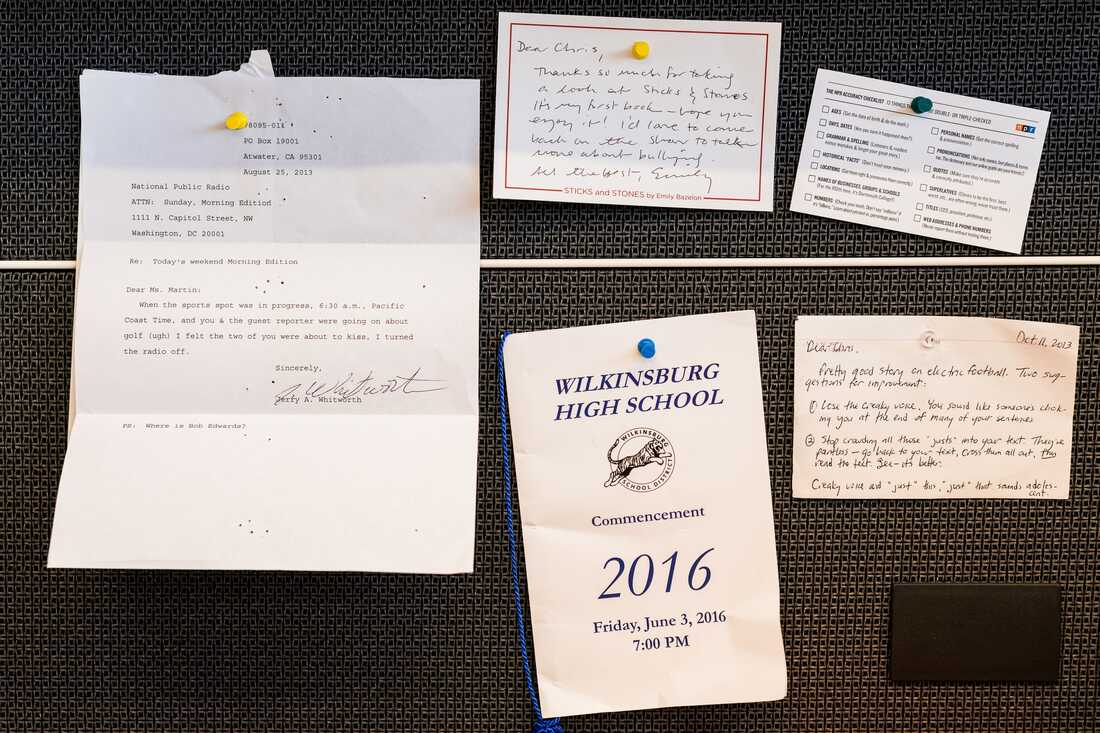 8095-016
PO Box 19001
Atwater, CA 95301
August 25, 2013
National Public Radio
ATTN: Sunday, Morning Edition
1111 N. Capitol Street, NW
Washington, DC 20001
Re: Today's weekend Morning Edition
Dear Ms. Martin:
When the sports spot was in progress, 6:30 a.m., Pacific
Coast Time, and you & the guest reporter were going on about
golf (ugh) I felt the two of you were about to kiss, I turned
the radio off.
Sincerely,
J. Whitworth
Jerry A. Whitworth
PS: Where is Bob Edwards?
Dear Chris,
Thanks so much for taking
a look at Sticks & Stones
It's my first book – hope you
enjoy it! I'd love to come
back on the show to talk
more about bullying.
All the best, Emily
STICKS and STONES by Emily Bazelon
THE NPR ACCURACY CHECKLIST 13 THINGS DOUBLE- OR TRIPLE-CHECKED
npr
AGES (Get the date of birth & do the math.)
DAYS, DATES (Are you sure it happened then?)
GRAMMAR & SPELLING
HISTORICAL "FACTS" (Don't trust your memory.)
LOCATIONS
NAMES OF BUSINESSES, GROUPS & SCHOOLS
(For the 100th time, it's Dartmouth College!)
NUMBERS
PERSONAL NAMES (Get the correct spelling
& pronunciation.)
PRONUNCIATIONS
QUOTES (Make sure they're accurate
& correctly attributed.)
SUPERLATIVES
TITLES (CEO, president, professor, etc.)
WEB ADDRESSES & PHONE NUMBERS
(Never report them without testing them.)
WILKINSBURG
HIGH SCHOOL
WILKINSBURG
SCHOOL DISTRICT
Commencement
2016
Friday, June 3, 2016
7:00 PM
Oct 11, 2013
Dear Chris,
Pretty good story on electric football. Two sug-
gestions for improvement:
① Lose the creaky voice. You sound like someone's chok-
ing you at the end of many of your sentences
② Stop crowding all those "justs" into your text. They're
pointless – go back to your text, cross them all out, then
read the text. See – it's better.
Creaky voice and "just" this, "just" that sounds adoles-
cent.